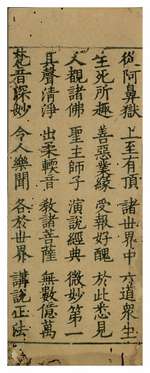 從阿鼻獄 上至有頂 諸世界中 六道衆生
生死所趣 善惡業緣 受報好醜 於此悉見
又覩諸佛 聖主師子 演說經典 微妙第一
其聲清淨 出柔軟音 教諸菩薩 無數億萬
梵音深妙 令人樂聞 各於世界 講說正法